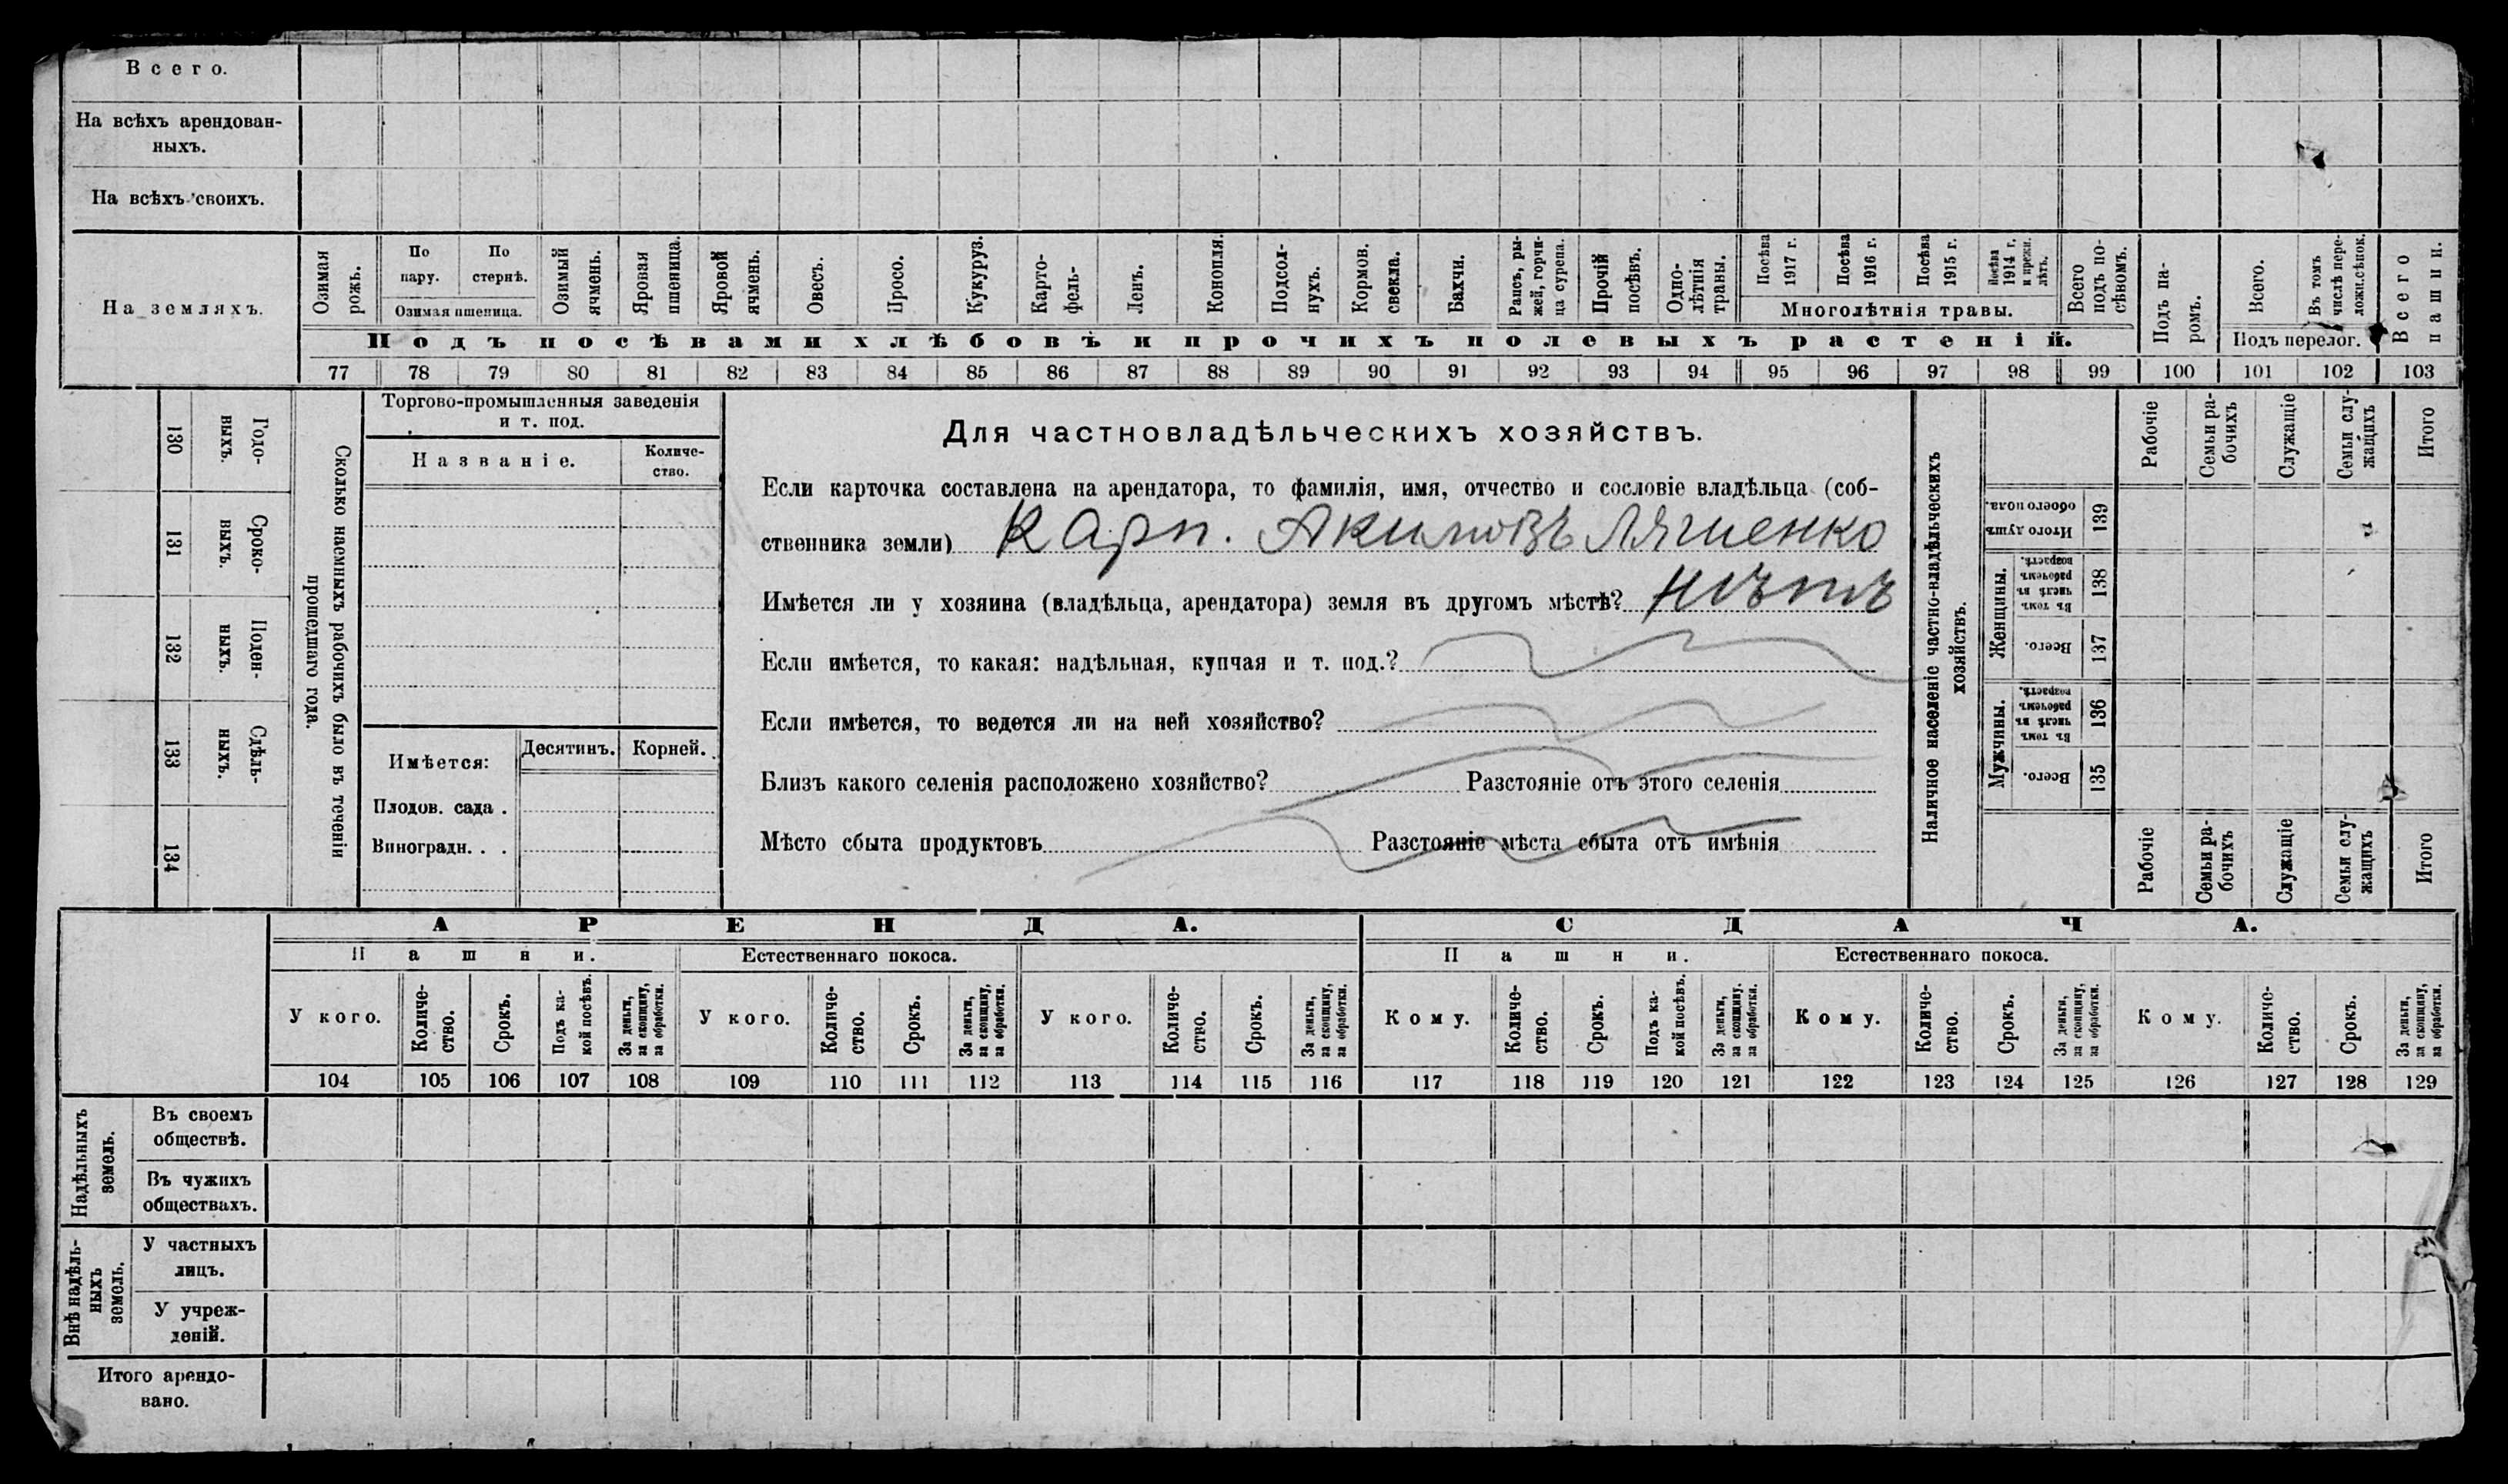 Всего.
На всѣхъ арендован-
ныхъ.
На всѣхъ своихъ.
На земляхъ.
Озимая рожь.
По пару.
По стернѣ.
Озимая пшеница.
Озимый ячмень.
Яровая пшеница.
Яровой ячмень.
Овесъ.
Просо.
Кукуруз.
Карто-
фель-
Ленъ.
Конопля.
Подсол-
нухъ.
Кормов.
свекла.
Бахчи.
Рапсъ, ры-
жей, горчи-
ца сурепа.
Прочій
посѣвъ.
Одно-
лѣтнія
травы.
Посѣва
1917 г.
Посѣва
1916 г.
Посѣва
1915 г.
Посѣва
1914 г.
и прежн.
лѣтъ.
Многолѣтнія травы.
Всего
подъ по-
сѣвомъ.
Подъ па-
ромъ.
Всего.
Въ томъ
числѣ пере-
ложн.сѣнок.
Подъ перелог.
Всего
пашни.
Подъ посѣвами хлѣбовъ и прочихъ полевыхъ растеній.
77 78 79 80 81 82 83 84 85 86 87 88 89 90 91 92 93 94 95 96 97 98 99 100 101 102 103
130
Годо-
выхъ.
131
Сроко-
выхъ.
132
Поден-
ныхъ.
133
Сдѣль-
ныхъ.
134
Сколько наемныхъ рабочихъ было въ теченіи
прошедшаго года.
Торгово-промышленныя заведенія
и т. под.
Названіе.
Количе-
ство.
Имѣется:
Десятинъ.
Корней.
Плодов. сада .
Виноградн. . .
Для частновладѣльческихъ хозяйствъ.
Если карточка составлена на арендатора, то фамилія, имя, отчество и сословіе владѣльца (соб-
ственника земли) Карп. Акимовъ Ляшенко
Имѣется ли у хозяина (владѣльца, арендатора) земля въ другомъ мѣстѣ? нѣтъ
Если имѣется, то какая: надѣльная, купчая и т. под.?
Если имѣется, то ведется ли на ней хозяйство?
Близъ какого селенія расположено хозяйство? Разстояніе отъ этого селенія
Мѣсто сбыта продуктовъ Разстояніе мѣста сбыта отъ имѣнія
Наличное населеніе частно-владѣльческихъ
хозяйствъ.
Рабочіе
Семьи ра-
бочихъ
Служащіе
Семьи слу-
жащихъ
Итого
Итого душъ
обоего пола.
139
Женщины.
Въ томъ
числѣ въ
рабочемъ
возрастѣ.
138
Всего.
137
Мужчины.
Въ томъ
числѣ въ
рабочемъ
возрастѣ.
136
Всего.
135
Рабочіе
Семьи ра-
бочихъ
Служащіе
Семьи слу-
жащихъ
Итого
АРЕНДА.
СДАЧА.
Пашни.
Естественнаго покоса.
Пашни.
Естественнаго покоса.
У кого.
Количе-
ство.
Срокъ.
Подъ ка-
кой посѣвъ.
За деньги,
за скопщину,
за обработки.
У кого.
Количе-
ство.
Срокъ.
За деньги,
за скопщину,
за обработки.
У кого.
Количе-
ство.
Срокъ.
За деньги,
за скопщину,
за обработки.
Кому.
Количе-
ство.
Срокъ.
Подъ ка-
кой посѣвъ.
За деньги,
за скопщину.
за обработки.
Кому.
Количе-
ство.
Срокъ.
За деньги,
за скопщину,
за обработки.
Кому.
Количе-
ство.
Срокъ.
За деньги,
за скопщину,
за обработки.
104 105 106 107 108 109 110 111 112 113 114 115 116 117 118 119 120 121 122 123 124 125 126 127 128 129
Надѣльныхъ
земель.
Въ своемъ
обществѣ.
Въ чужихъ
обществахъ.
Внѣ надѣль-
ныхъ
земель.
У частныхъ
лицъ.
У учреж-
деній.
Итого арендо-
вано.